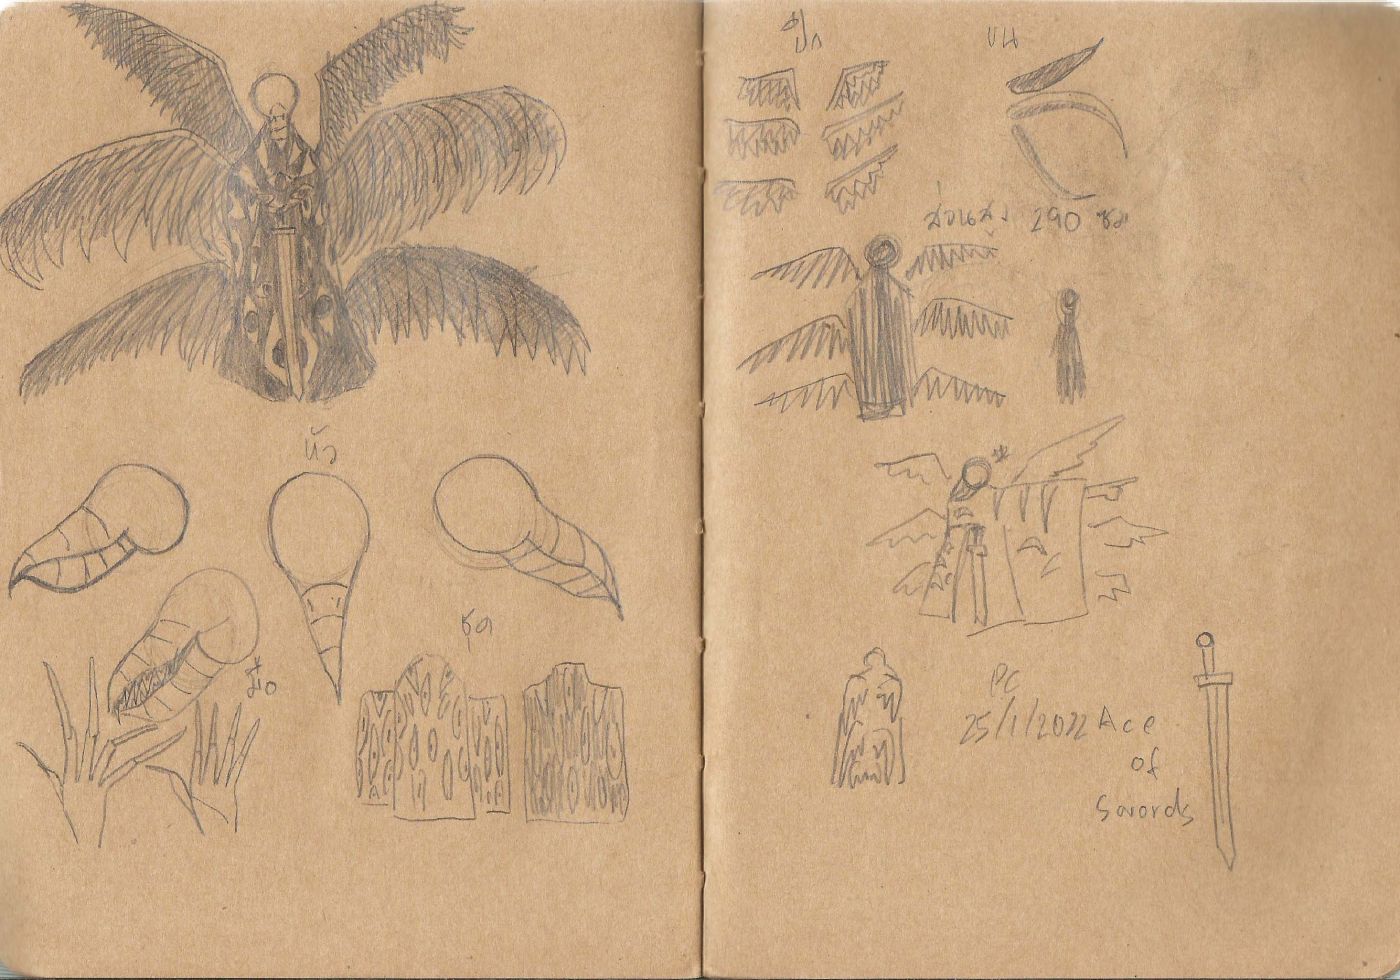 หัว
ชุด
มือ
ปีก
ขน
ส่วนสูง 290 ซม
PC
25/1/2022
Ace
of
Swords